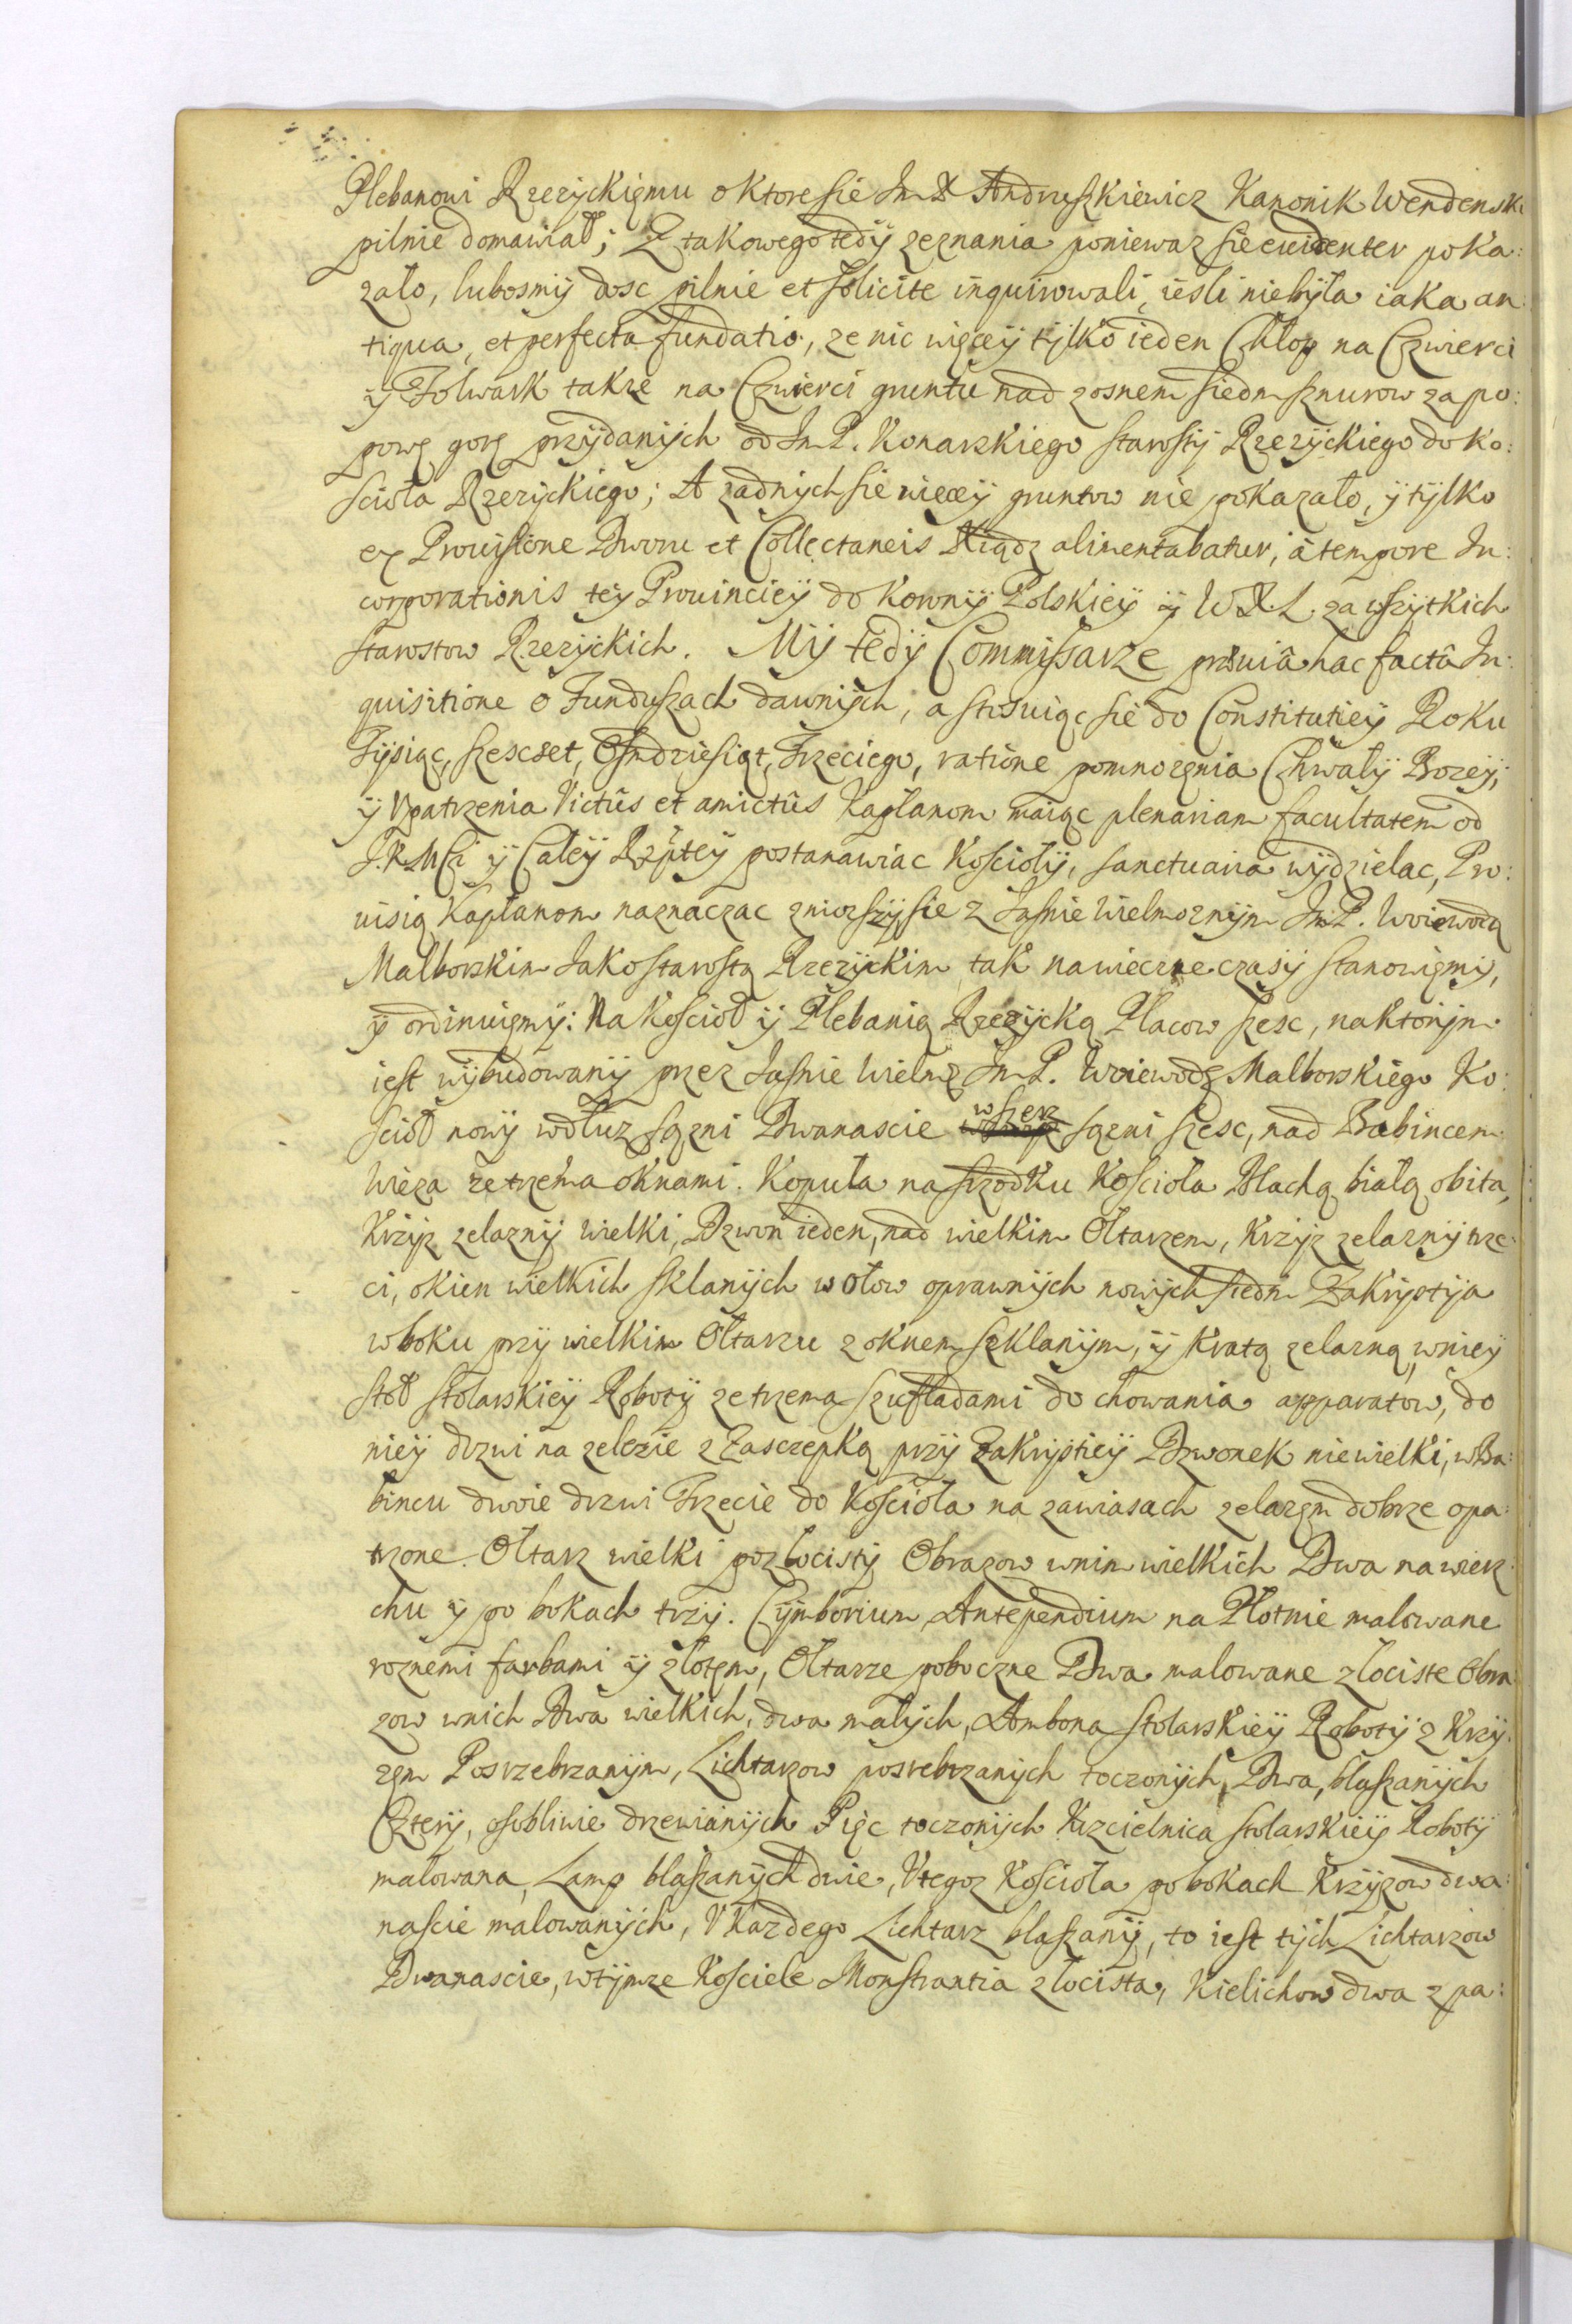 Plebanowi Rzezyckięmu o ktore sie Jm X Andruszkiewicz Kanonik Wendenski
pilnie domawiał; Z takowego tedÿ zeznania poniewaz sie euidenter poka:
zało, lubosmÿ dosc pilnie et solicite inquirowali, iesli niebÿła iaka an:
tiqua, et perfecta fundatio, ze nic więceÿ tÿlko ieden Chłop na Czwierci
ÿ Folwark takze na Czwierci gruntu nad zosnem siedm sznurow za po:
powę gorę przÿdanÿch od Jm P. Konarskiego starostÿ Rzezÿckiego do Ko:
scioła Rzezÿckiego; A zadnÿch sie wieceÿ gruntow nie pokazało, ÿ tÿlko
ex Prouisione Dworu et Collectaneis Xiądz alimentabatur, à tempore In:
corporationis teÿ Prouincieÿ do Koronÿ Polskieÿ ÿ W X L. za wszÿtkich
starostow Rzezÿckich. Mÿ tedÿ Commissarze præuiâ hac factâ In:
quisitione o Funduszach dawnÿch, a stosuiąc sie do Constitutieÿ Roku
Tÿsiąc, szescset, Osmdziesiąt, Trzeciego, ratione pomnozęnia Chwałÿ Bozeÿ,
ÿ Vpatrzenia Victûs et amictûs Kapłanom maiąc plenariam facultatem od
J.K.MCi ÿ Całeÿ Rzpteÿ postanawiac Kosciołÿ, sanctuaria wÿdzielac, Pro:
uisią Kapłanom naznaczac zniozszÿ sie z Jasnie Wielmoznÿm Jm P. Woiewodą
Malborskim Jako starostą Rzezÿckim tak na wieczne czasÿ stanowięmÿ,
ÿ ordinuięmÿ: Na Koscioł ÿ Plebanią Rzezÿcką Placow szesc, na ktorÿm
iest wÿbudowanÿ przez Jasnie Wielmz Jm P. Woiewodę Malborskiego Ko:
scioł nowÿ wdłuz sązni Dwanascie wszerz sązni szesc, nad Babincem
Wieza ze trzema oknami. Kopuła na srzodku Koscioła Blachą białą obita,
Krzÿz zelaznÿ wielki, Dzwon ieden, nad wielkim Ołtarzem, Krzÿz zelaznÿ trze:
ci, okien wielkich sklanÿch w ołow oprawnÿch nowÿch siedm Zakrÿstÿa
w boku przÿ wielkim Ołtarzu z oknem szklanÿm, ÿ kratą zelazną, w nieÿ
stoł stolarskieÿ Robotÿ ze trzema szufladami do chowania apparatow, do
nieÿ drzwi na zelezie z Zasczepką przÿ Zakrÿstieÿ Dzwonek niewielki, w Ba:
bincu dwoie drzwi Trzecie do Koscioła na zawiasach zelazęm dobrze opa:
trzone. Ołtarz wielki pozłocistÿ Obrazow w nim wielkich Dwa na wierz:
chu ÿ po bokach trzÿ. Cÿmborium Antependium na Płotnie malowane
roznemi farbami ÿ złotęm, Ołtarze poboczne Dwa malowane złociste Obra:
zow w nich Dwa wielkich, dwa małÿch, Ambona stolarskieÿ Robotÿ z Krzÿ:
zęm Posrzebrzanÿm, Lichtarzow posrebrzanÿch toczonÿch, Dwa, blaszanÿch
Czterÿ, osobliwie drzewianÿch Pięc toczonÿch Krzcielnica stolarskieÿ Robotÿ
malowana, Lamp blaszanÿch dwie, V tegoz Koscioła po bokach Krzÿzow dwa:
nascie malowanÿch, V kazdego Lichtarz blaszanÿ, to iest tÿch Lichtarzow
Dwanascie, w tÿmze Kosciele Monstrantia złocista, Kielichow dwa z pa: